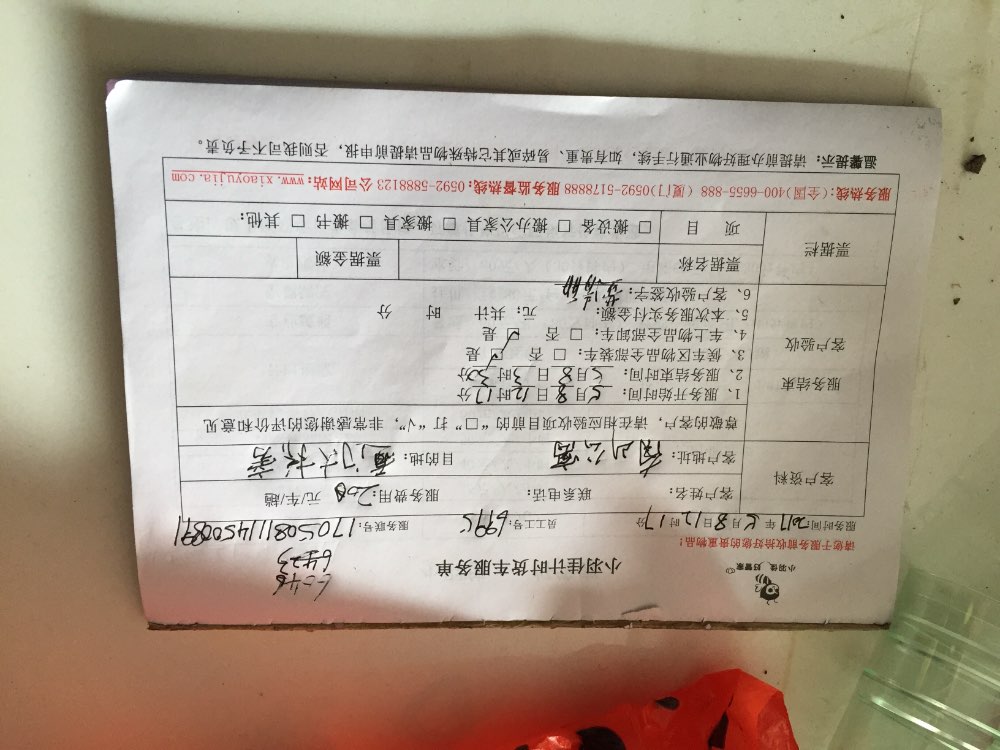 小羽佳 好管家
小羽佳计时货车服务单
6546
6423
请您于服务前收拾好您的贵重物品！
服务时间：2017年5月8日12时17分 员工工号：6995 服务联号：1705081114500891
客户资料
客户姓名： 联系电话： 服务费用：200元/车/趟
客户地址：南山公寓 目的地：厦门大桥旁
尊敬的客户，请在相应验收项目前的“□”打“√”，非常感谢您的评价和意见
服务结束
客户验收
1、服务开始时间：5月8日12时17分
2、服务结束时间：5月8日3时30分
3、候车区物品全部装车：□否 ☑是
4、车上物品全部卸车：□否 ☑是
5、本次服务实付金额： 元；共计 时 分
6、客户验收签字：
票据栏
票据名称 票据金额
项 目 □搬设备 □搬办公家具 □搬家具 □搬书 □其他：
服务热线：(全国)400-6655-888 (厦门)0592-5178888 服务监督热线：0592-5888123 公司网站：www.xiaoyujia.com
温馨提示：请提前办理好物业通行手续，如有贵重、易碎或其它特殊物品请提前申报，否则我司不予负责。